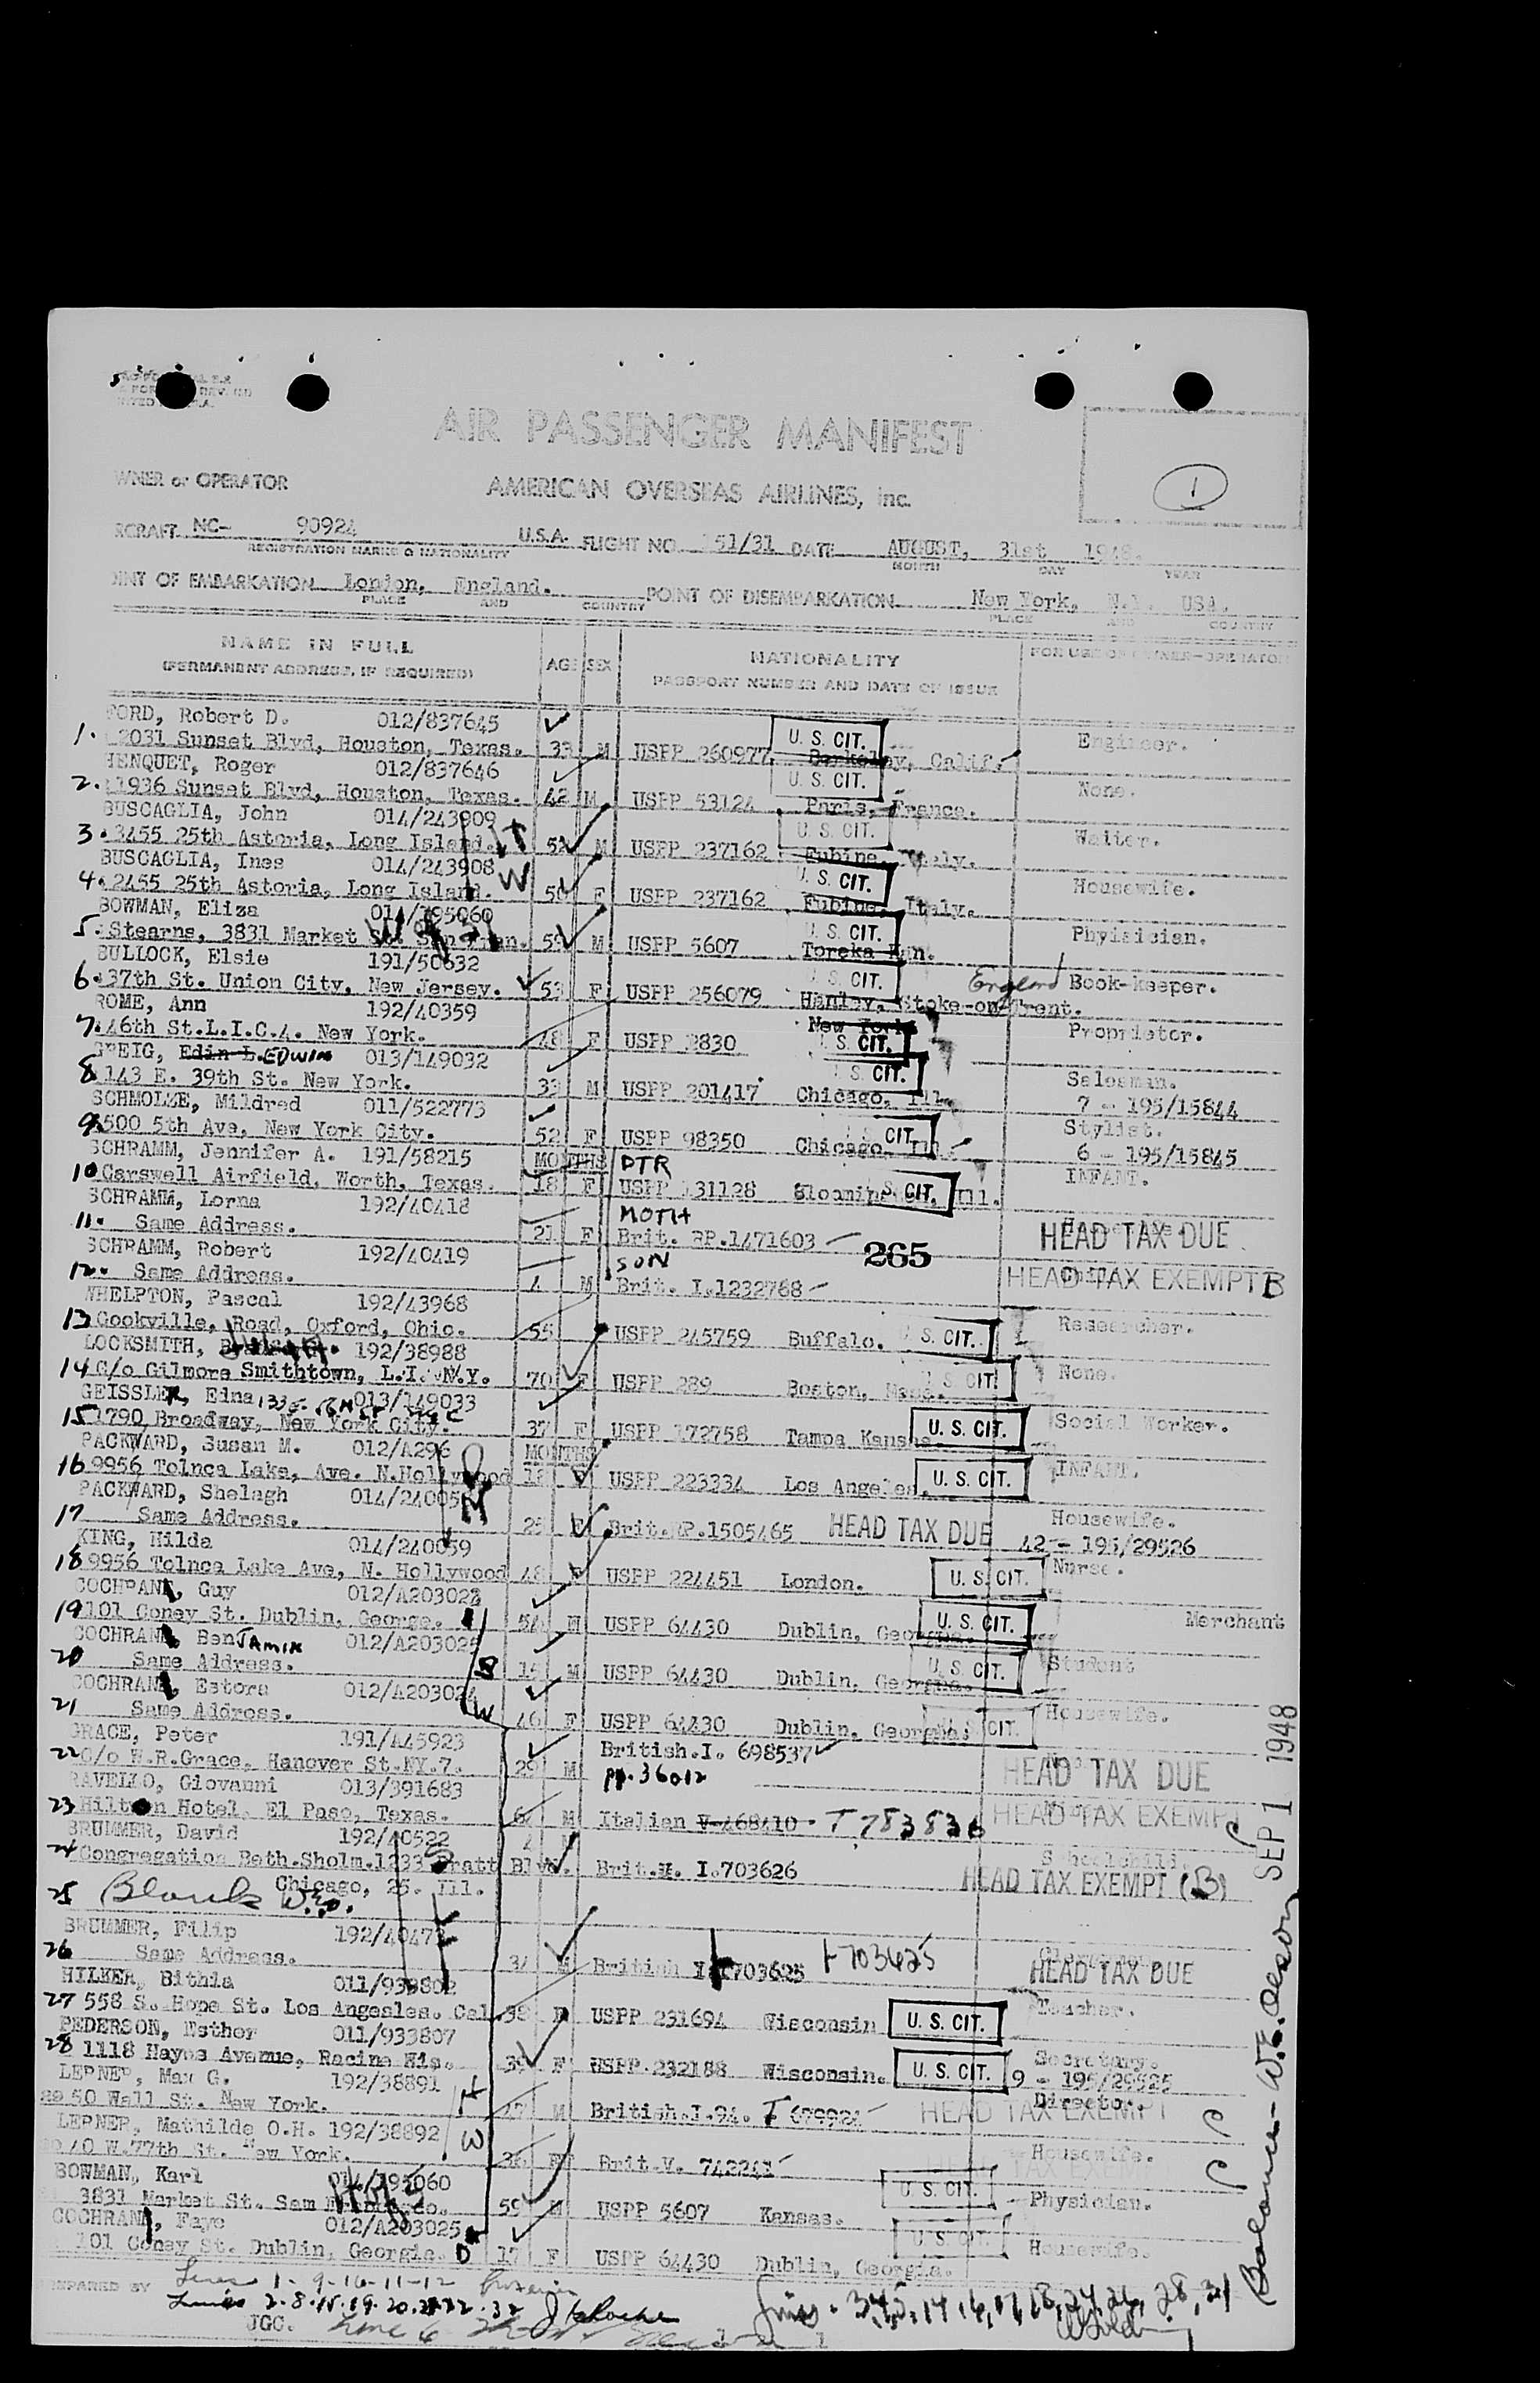 AIR PASSENGER MANIFEST
1
WNER or OPERATOR AMERICAN OVERSEAS AIRLINES, Inc.
RCRAFT NC- 90924 U.S.A. FLIGHT NO. 151/31 DATE AUGUST, 31st 1948.
REGISTRATION MARKS & NATIONALITY MONTH DAY YEAR
INT OF EMBARKATION London, England. POINT OF DISEMBARKATION New York, N.Y. USA.
PLACE AND COUNTRY PLACE AND COUNTRY
NAME IN FULL AGE SEX NATIONALITY FOR USE OF OWNER-OPERATOR
(PERMANENT ADDRESS, IF REQUIRED) PASSPORT NUMBER AND DATE OF ISSUE
FORD, Robert D. 012/837645
1. 2031 Sunset Blvd, Houston, Texas. 33 M USPP 260977 Berkeley, Calif. U. S. CIT. Engineer.
HENQUET, Roger 012/837646
2. 1936 Sunset Blvd, Houston, Texas. 42 M USPP 53124 Paris, France. U. S. CIT. None.
BUSCAGLIA, John 014/243909
3. 3455 25th Astoria, Long Island. H 52 M USPP 237162 Fubine, Italy. U. S. CIT. Waiter.
BUSCAGLIA, Ines 014/243908
4. 2455 25th Astoria, Long Island. W 50 F USPP 237162 Fubine, Italy. U. S. CIT. Housewife.
BOWMAN, Eliza 014/395060
5. Stearns, 3831 Market St. San Fran. 59 M USPP 5607 Toreka Kan. U. S. CIT. Phyisician.
BULLOCK, Elsie 191/50632
6. 37th St. Union City, New Jersey. 53 F USPP 256079 Hanley, Stoke-on-Trent. England U. S. CIT. Book-keeper.
ROME, Ann 192/40359
7. 46th St.L.I.C.4. New York. 48 F USPP 2830 New York U. S. CIT. Proprietor.
GREIG, Edin L. EDWIN 013/149032
8 143 E. 39th St. New York. 33 M USPP 201417 Chicago, Ill. U. S. CIT. Salesman.
7 - 195/15844
SCHMOLZE, Mildred 011/522773
9 500 5th Ave, New York City. 52 F USPP 98350 Chicago, Ill. CIT. Stylist.
6 - 195/15845
SCHRAMM, Jennifer A. 191/58215 MONTHS DTR
10 Carswell Airfield, Worth, Texas. 18 F USPP 131128 Ill. S. CIT. INFANT.
SCHRAMM, Lorna 192/40418 MOTH
11. Same Address. 21 F Brit. RP.1471603 265 HEAD TAX DUE
SCHRAMM, Robert 192/40419 SON
12. Same Address. 4 M Brit. I.1232768 HEAD TAX EXEMPT B
WHELPTON, Pascal 192/43968
13 Cookville, Road, Oxford, Ohio. 55 USPP 245759 Buffalo. U. S. CIT. Researcher.
LOCKSMITH, 192/38988
14 C/o Gilmore Smithtown, L.I. N.Y. 70 F USPP 289 Boston, Mass. U. S. CIT. None.
GEISSLER, Edna 013/149033
15 1790 Broadway, New York City. 37 F USPP 172758 Tampa Kansas. U. S. CIT. Social Worker.
PACKWARD, Susan M. 012/A296 MONTHS
16 9956 Tolnca Lake, Ave. N.Hollywood 18 F USPP 223334 Los Angeles. U. S. CIT. INFANT.
PACKWARD, Shelagh 014/240058 M
17 Same Address. 25 F Brit.RP.1505465 HEAD TAX DUE Housewife.
42 - 195/29526
KING, Hilda 014/240059
18 9956 Tolnca Lake Ave, N. Hollywood 48 F USPP 224451 London. U. S. CIT. Nurse.
COCHRAN, Guy 012/A203023
19 101 Coney St. Dublin, George. 54 M USPP 64430 Dublin, Georgia. U. S. CIT. Merchant
COCHRAN, BenJAMIN 012/A203025
20 Same Address. S 15 M USPP 64430 Dublin, Georgia. U. S. CIT. Student
COCHRAN, Estora 012/A203024
21 Same Address. W 46 F USPP 64430 Dublin, Georgia. U. S. CIT. Housewife.
GRACE, Peter 191/A45923 British.I. 698537
22 C/o W.R.Grace, Hanover St.NY.7. 29 M pp.36012 HEAD TAX DUE
RAVELLO, Giovanni 013/391683
23 Hilton Hotel, El Paso, Texas. 64 M Italian V-468410 T 783836 HEAD TAX EXEMPT
BRUMMER, David 192/40522 4 M
24 Congregation Beth.Sholm.1233 Pratt Blvd. Brit. I.703626 HEAD TAX EXEMPT (B)
Chicago, 26. Ill.
25 Blank W.E.O.
BRUMMER, Filip 192/40472
26 Same Address. 34 M British I.703625 I 703625 HEAD TAX DUE
HILKER, Bithia 011/933802
27 558 S. Hope St. Los Angesles. Cal. 38 F USPP 231694 Wisconsin U. S. CIT. Teacher.
PEDERSON, Esther 011/933807
28 1118 Hayes Avenue, Racine Wis. 39 F USPP.232188 Wisconsin. U. S. CIT. Secretary.
9 - 195/29525
LERNER, Max G. 192/38891 H
29 50 Wall St. New York. 47 M British.I.94. HEAD TAX EXEMPT Director.
LERNER, Mathilde O.H. 192/38892 W
40 W.77th St. New York. 36 F Brit.V. HEAD TAX EXEMPT Housewife.
BOWMAN, Karl 014/395060
3831 Market St. Sam Francisco. 59 M USPP 5607 Kansas. U. S. CIT. Physician.
COCHRAN, Faye 012/A203025
101 Coney St. Dublin, Georgia. D 17 F USPP 64430 Dublin, Georgia. U. S. CIT. Housewife.
PREPARED BY
JGC.
SEP 1 1948
Balance - W.E. Olson